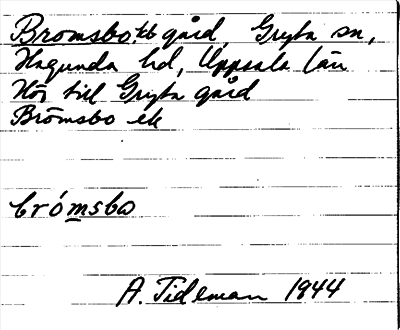 Bromsbo, kb gård, Gryta sn,
Hagunda hd, Uppsala län
Hör till Gryta gård
Brömsbo ek
brómsbo
A. Tideman 1944